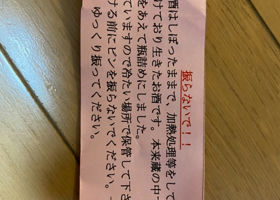 振らないで!!
酒はしぼったままで、加熱処理等をして
けており生きたお酒です。本来蔵の中で
をあえて瓶詰めにしました。
ていますので冷たい場所で保管して下さ
ける前にビンを振らないでください。
ゆっくり振ってください。